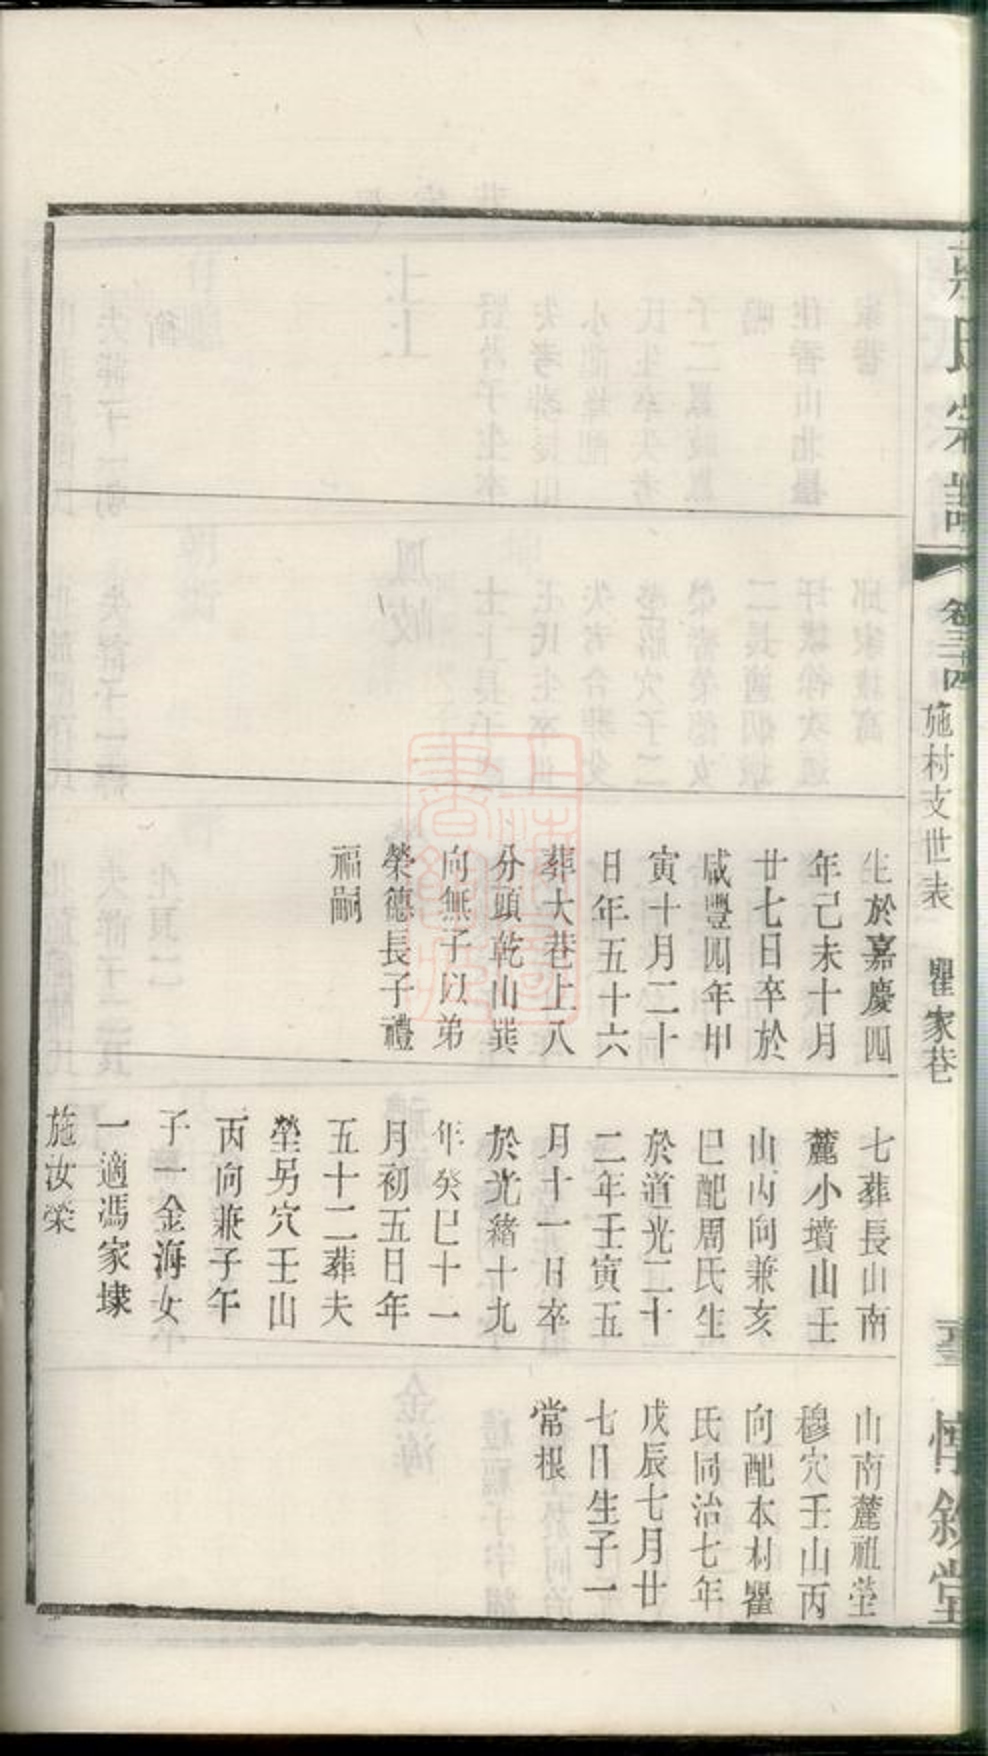 氏宗譜
卷三十四
施村支世表
瞿家巷
惇敘堂
生於嘉慶四
年己未十月
廿七日卒於
咸豐四年甲
寅十月二十
日年五十六
葬大巷上八
分頭乾山巽
向無子以弟
榮德長子禮
福嗣
七葬長山南
麓小墳山壬
山丙向兼亥
巳配周氏生
於道光二十
二年壬寅五
月十一日卒
於光緒十九
年癸巳十一
月初五日年
五十二葬夫
塋另穴壬山
丙向兼子午
子一金海女
一適馮家埭
施汝榮
山南麓祖塋
穆穴壬山丙
向配本村瞿
氏同治七年
戊辰七月廿
七日生子一
常根